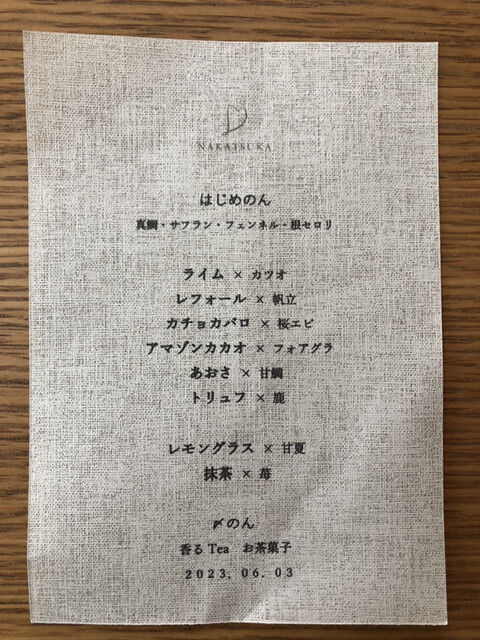 NAKATSUKA
はじめのん
真鯛・サフラン・フェンネル・根セロリ
ライム × カツオ
レフォール × 帆立
カチョカバロ × 桜エビ
アマゾンカカオ × フォアグラ
あおさ × 甘鯛
トリュフ × 鹿
レモングラス × 甘夏
抹茶 × 苺
〆のん
香るTea　お茶菓子
2023. 06. 03